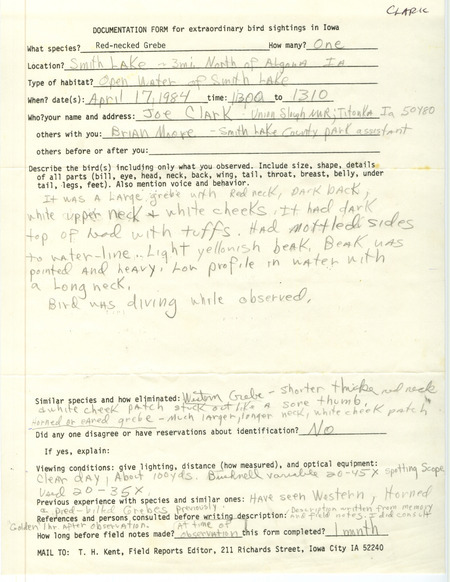 CLARK
DOCUMENTATION FORM for extraordinary bird sightings in Iowa
What species? Red-necked Grebe How many? One
Location? Smith Lake - 3mi. North of Algona IA
Type of habitat? Open Water of Smith Lake
When? date(s): April 17, 1984 time: 1300 to 1310
Who?your name and address: Joe Clark - Union Slough NWR; Titonka Ia 50480
others with you: Brian Moore - Smith Lake County park assistant
others before or after you:
Describe the bird(s) including only what you observed. Include size, shape, details
of all parts (bill, eye, head, neck, back, wing, tail, throat, breast, belly, under
tail, legs, feet). Also mention voice and behavior.
It was a large grebe with Red neck, Dark back,
white upper neck & white cheeks. It had dark
top of head with tuffs. Had mottled sides
to water-line.. Light yellowish beak. Beak was
pointed and heavy. Low profile in water with
a long neck.
Bird was diving while observed.
Similar species and how eliminated: Western Grebe - shorter thicker red neck
& white cheek patch stuck out like a sore thumb.
Horned or eared grebe - much larger, longer neck, white cheek patch
Did any one disagree or have reservations about identification? No
If yes, explain:
Viewing conditions: give lighting, distance (how measured), and optical equipment:
Clear day, About 100yds. Bushnell variable 20-45X spotting Scope
Used 20-35X.
Previous experience with species and similar ones: Have seen Western, Horned
& pied-billed Grebes previously.
References and persons consulted before writing description: Description written from memory
and field notes. I did consult
"Golden" 1hr after observation. At time of
How long before field notes made? observation this form completed? 1 month
MAIL TO: T. H. Kent, Field Reports Editor, 211 Richards Street, Iowa City IA 52240